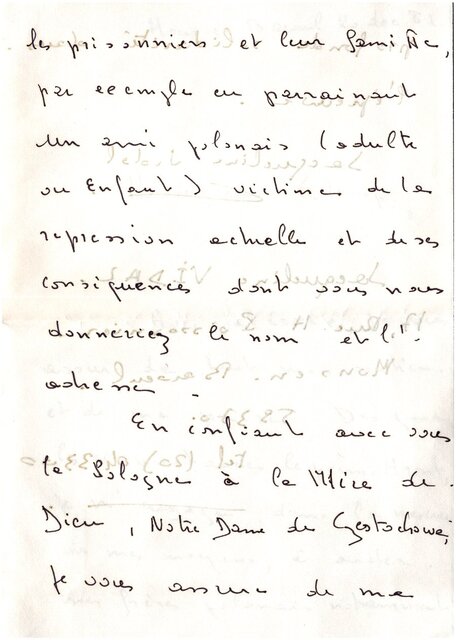 les prisonniers et leur famille,
par exemple en parrainant
un ami polonais (adulte
ou Enfant) victime de la
repression actuelle et de ses
conséquences dont vous nous
donneriez le nom et l'
adresse.
En confiant avec vous
la Pologne à la Mère de
Dieu, Notre Dame de Czestochowa,
je vous assure de ma